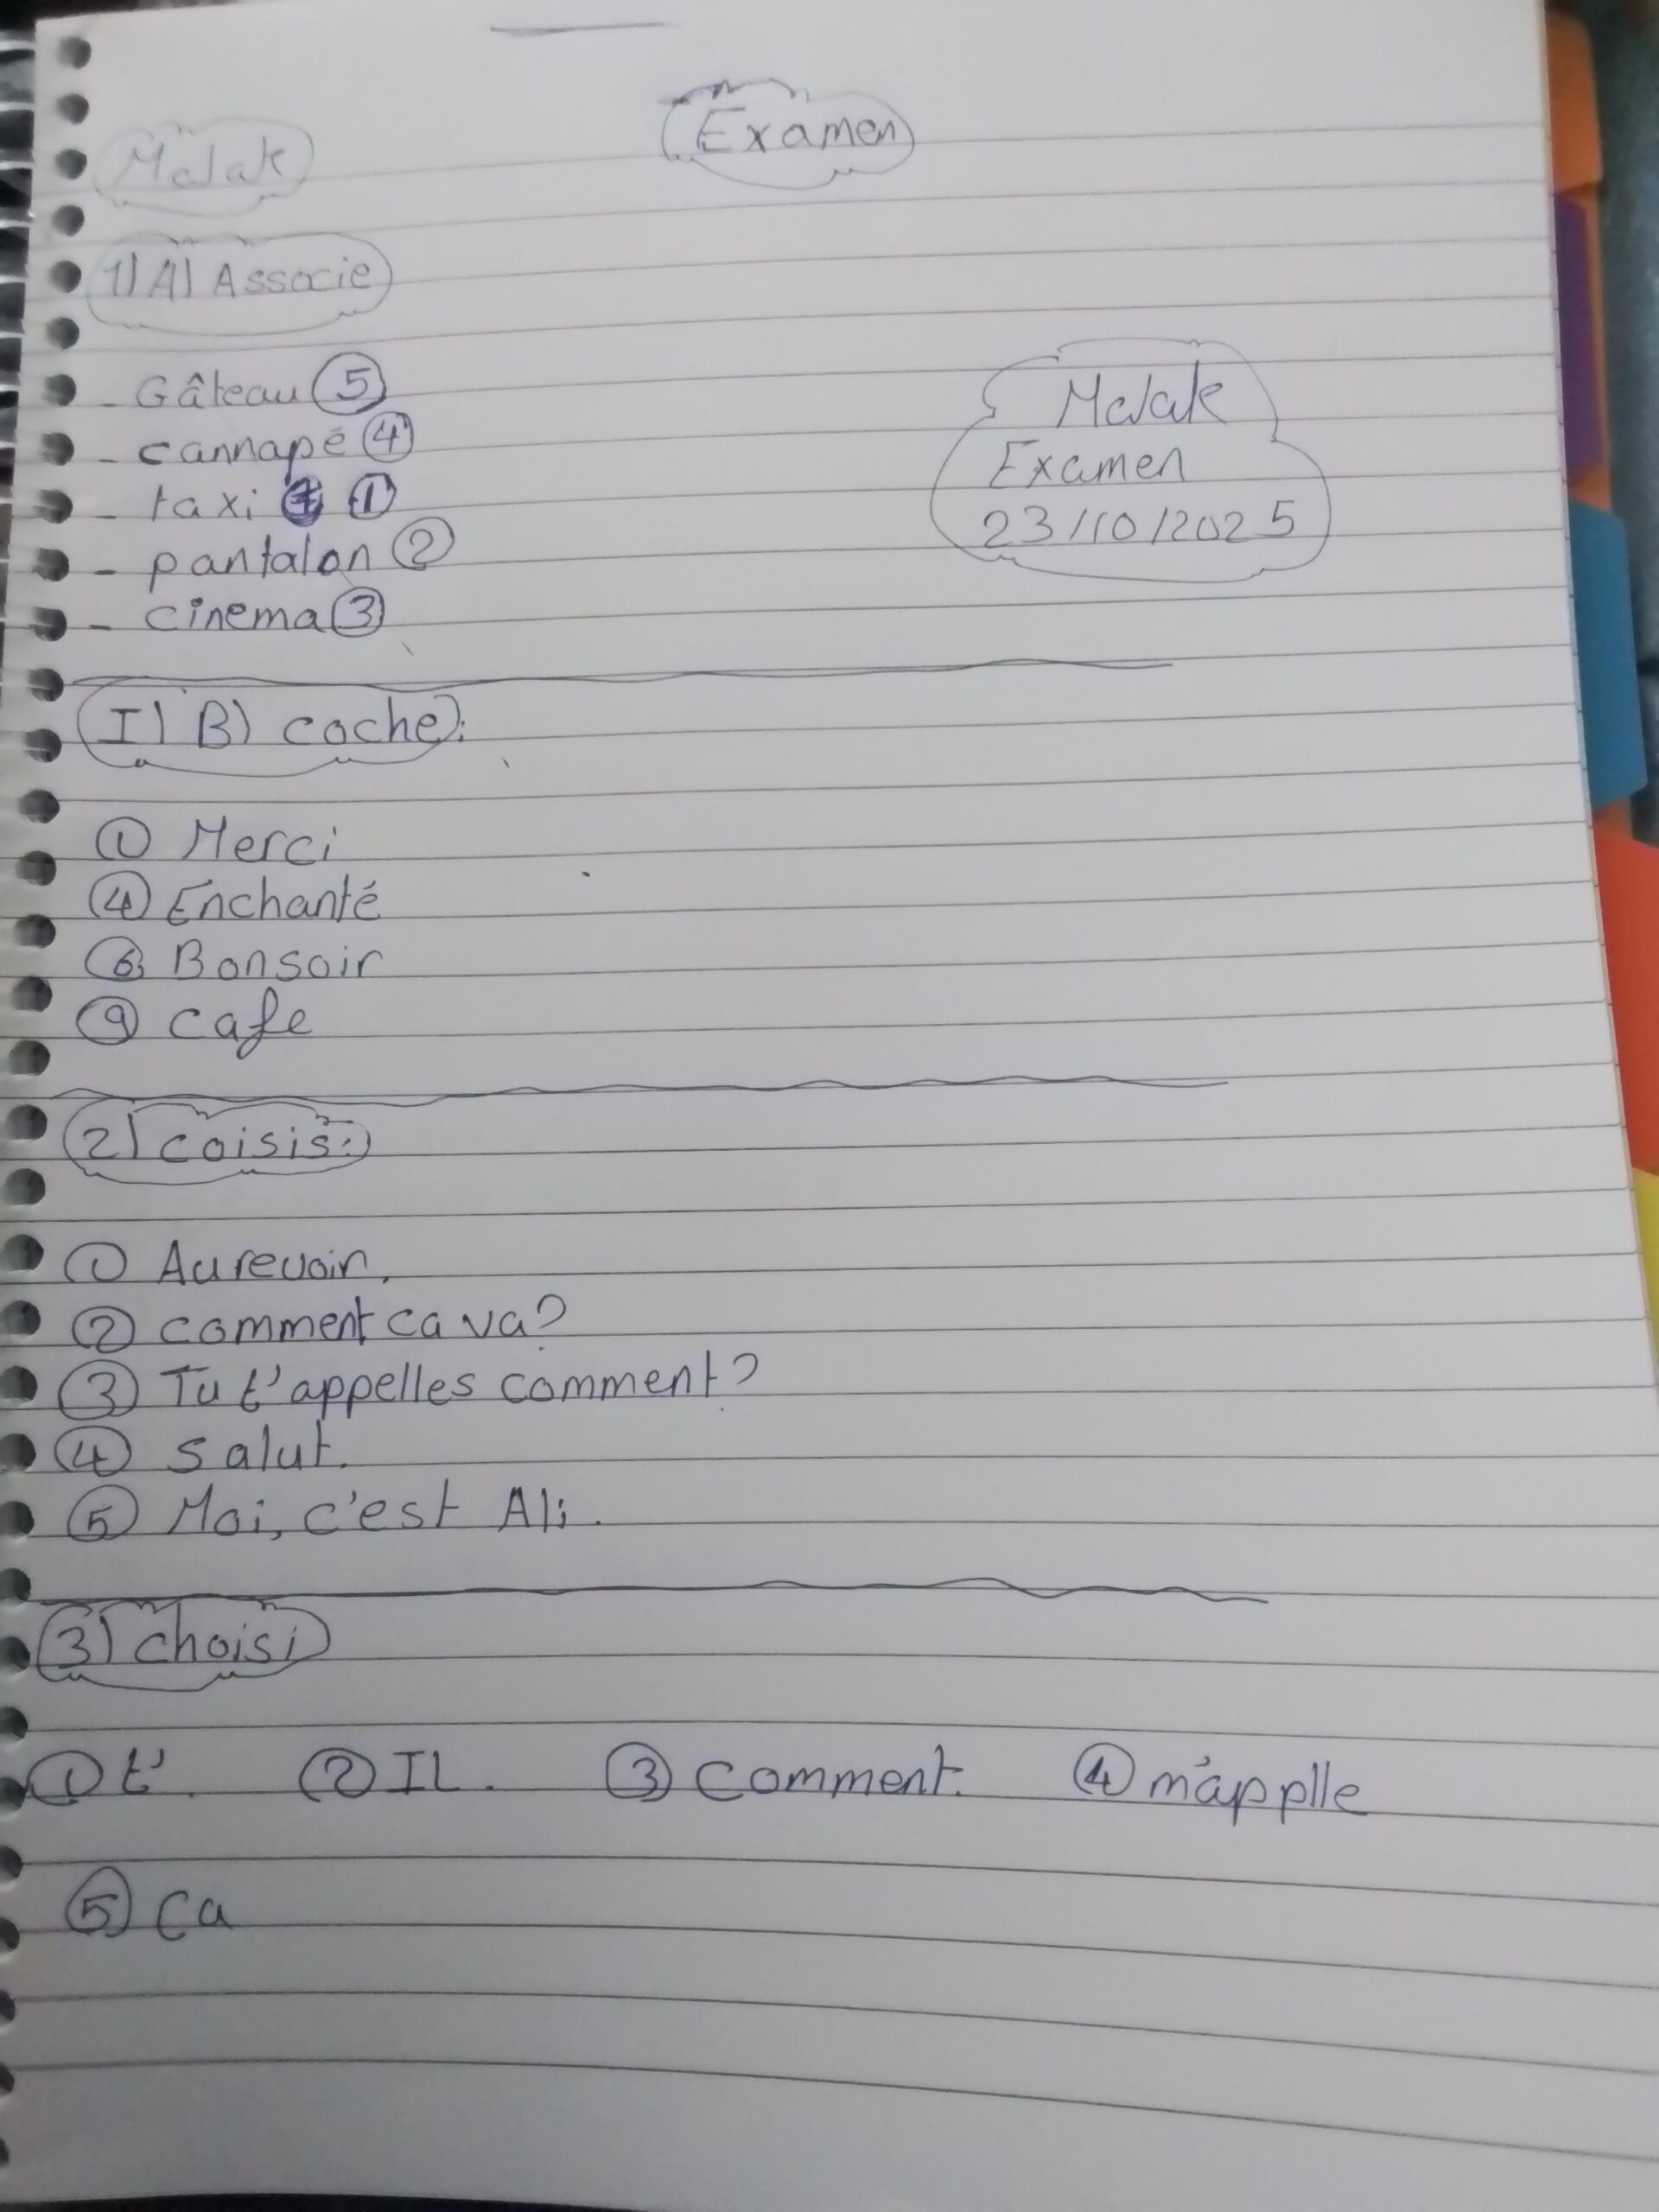 Examen
Malak
1) A) Associe
- Gâteau 5
- cannapé 4
- taxi 1
- pantalon 2
- cinema 3
Malak
Examen
23/10/2025
I) B) coche:
1 Merci
4 Enchanté
6 Bonsoir
9 cafe
2) coisis:
1 Au revoir.
2 comment ca va?
3 Tu t'appelles comment?
4 salut.
5 Moi, c'est Ali.
3) choisi
1 t'. 2 IL. 3 comment. 4 m'applle
5 ca